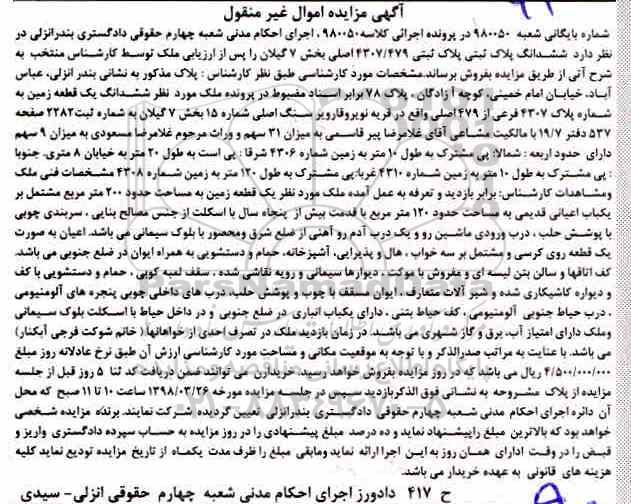 آگهی مزایده اموال غیر منقول
شماره بایگانی شعبه ۹۸۰۰۵۰ در پرونده اجرائی کلاسه ۹۸۰۰۵۰، اجرای احکام مدنی شعبه چهارم حقوقی دادگستری بندرانزلی در
نظر دارد ششدانگ پلاک ثبتی پلاک ثبتی ۴۳۰۷/۴۷۹ اصلی بخش ۷ گیلان را پس از ارزیابی ملک توسط کارشناس منتخب به
شرح آتی از طریق مزایده بفروش برساند.مشخصات مورد کارشناسی طبق نظر کارشناس : پلاک مذکور به نشانی بندر انزلی، عباس
آباد، خیابان امام خمینی، کوچه آزادگان ، پلاک ۷۸ برابر اسناد مضبوط در پرونده ملک مورد نظر ششدانگ یک قطعه زمین به
شماره پلاک ۴۳۰۷ فرعی از ۴۷۹ اصلی واقع در قریه نویروقارویر سنگ اصلی شماره ۱۵ بخش ۷ گیلان به شماره ثبت ۲۲۸۲ صفحه
۵۳۷ دفتر ۱۹/۷ با مالکیت مشاعی آقای غلامرضا پیر قاسمی به میزان ۳۱ سهم و وراث مرحوم غلامرضا مسعودی به میزان ۹ سهم
دارای حدود اربعه : شمالا: پی مشترک به طول ۱۰ متر به زمین شماره ۴۳۰۶ شرقا : پی است به طول ۲۰ متر به خیابان ۸ متری. جنوبا
: پی مشترک به طول ۱۰ متر به زمین شماره ۴۳۱۰ غربا:پی مشترک به طول ۱۲۰ متر به زمین شماره ۴۳۰۸ مشخصات فنی ملک
ومشاهدات کارشناس: برابر بازدید و تعرفه به عمل آمده ملک مورد نظر یک قطعه زمین به مساحت حدود ۲۰۰ متر مربع مشتمل بر
یکباب اعیانی قدیمی به مساحت حدود ۱۲۰ متر مربع با قدمت بیش از پنجاه سال با اسکلت از جنس مصالح بنایی ، سربندی چوبی
با پوشش حلب ، درب ورودی ماشین رو و یک درب آدم رو آهنی از ضلع شرق ومحصور با بلوک سیمانی می باشد. اعیان به صورت
یک قطعه روی کرسی و مشتمل بر سه خواب ، هال و پذیرایی، آشپزخانه، حمام و دستشویی به همراه ایوان در ضلع جنوبی می باشد.
کف اتاقها و سالن بتن لیسه ای و مفروش با موکت ، دیوارها سیمانی و رویه نقاشی شده ، سقف لمبه کوبی ، حمام و دستشویی با کف
و دیواره کاشیکاری شده و شیر آلات متعارف ، ایوان مسقف با چوب و پوشش حلب، درب های داخلی چوبی پنجره های آلومنیومی
، درب حیاط جنوبی آلومنیومی ، کف حیاط بتنی ، دارای یکباب انباری در ضلع جنوبی و در داخل حیاط با اسکلت بلوک سیمانی
وملک دارای امتیاز آب، برق و گاز شهری می باشند، در زمان بازدید ملک در تصرف احدی از خواهانها( خانم شوکت فرجی آبکنار)
می باشد. با عنایت به مراتب صدرالذکر و با توجه به موقعیت مکانی و مساحت مورد کارشناسی ارزش آن طبق نرخ عادلانه روز مبلغ
۴/۵۰۰/۰۰۰/۰۰۰ ریال می باشد که در روز مزایده بفروش خواهد رسید. خریداران می توانند ضمن دریافت کد ثنا ۵ روز قبل از جلسه
مزایده از پلاک مشروحه به نشانی فوق الذکربازدید سپس در جلسه مزایده مورخه ۱۳۹۸/۰۳/۲۶ ساعت ۱۰ تا ۱۱ صبح که محل
آن دائره اجرای احکام مدنی شعبه چهارم حقوقی دادگستری بندرانزلی تعیین گردیده شرکت نمایند. برنده مزایده شخصی
خواهد بود که بالاترین مبلغ راپیشنهاد نماید و ده درصد مبلغ پیشنهادی را در روز مزایده به حساب سپرده دادگستری واریز و
قبض را در وقت اداری همان روز به این اجرا ارائه نماید ومابقی مبلغ را ظرف مدت یکماه از تاریخ مزایده تودیع نماید کلیه
هزینه های قانونی به عهده خریدار می باشد.
ح ۴۱۷ دادورز اجرای احکام مدنی شعبه چهارم حقوقی انزلی- سیدی